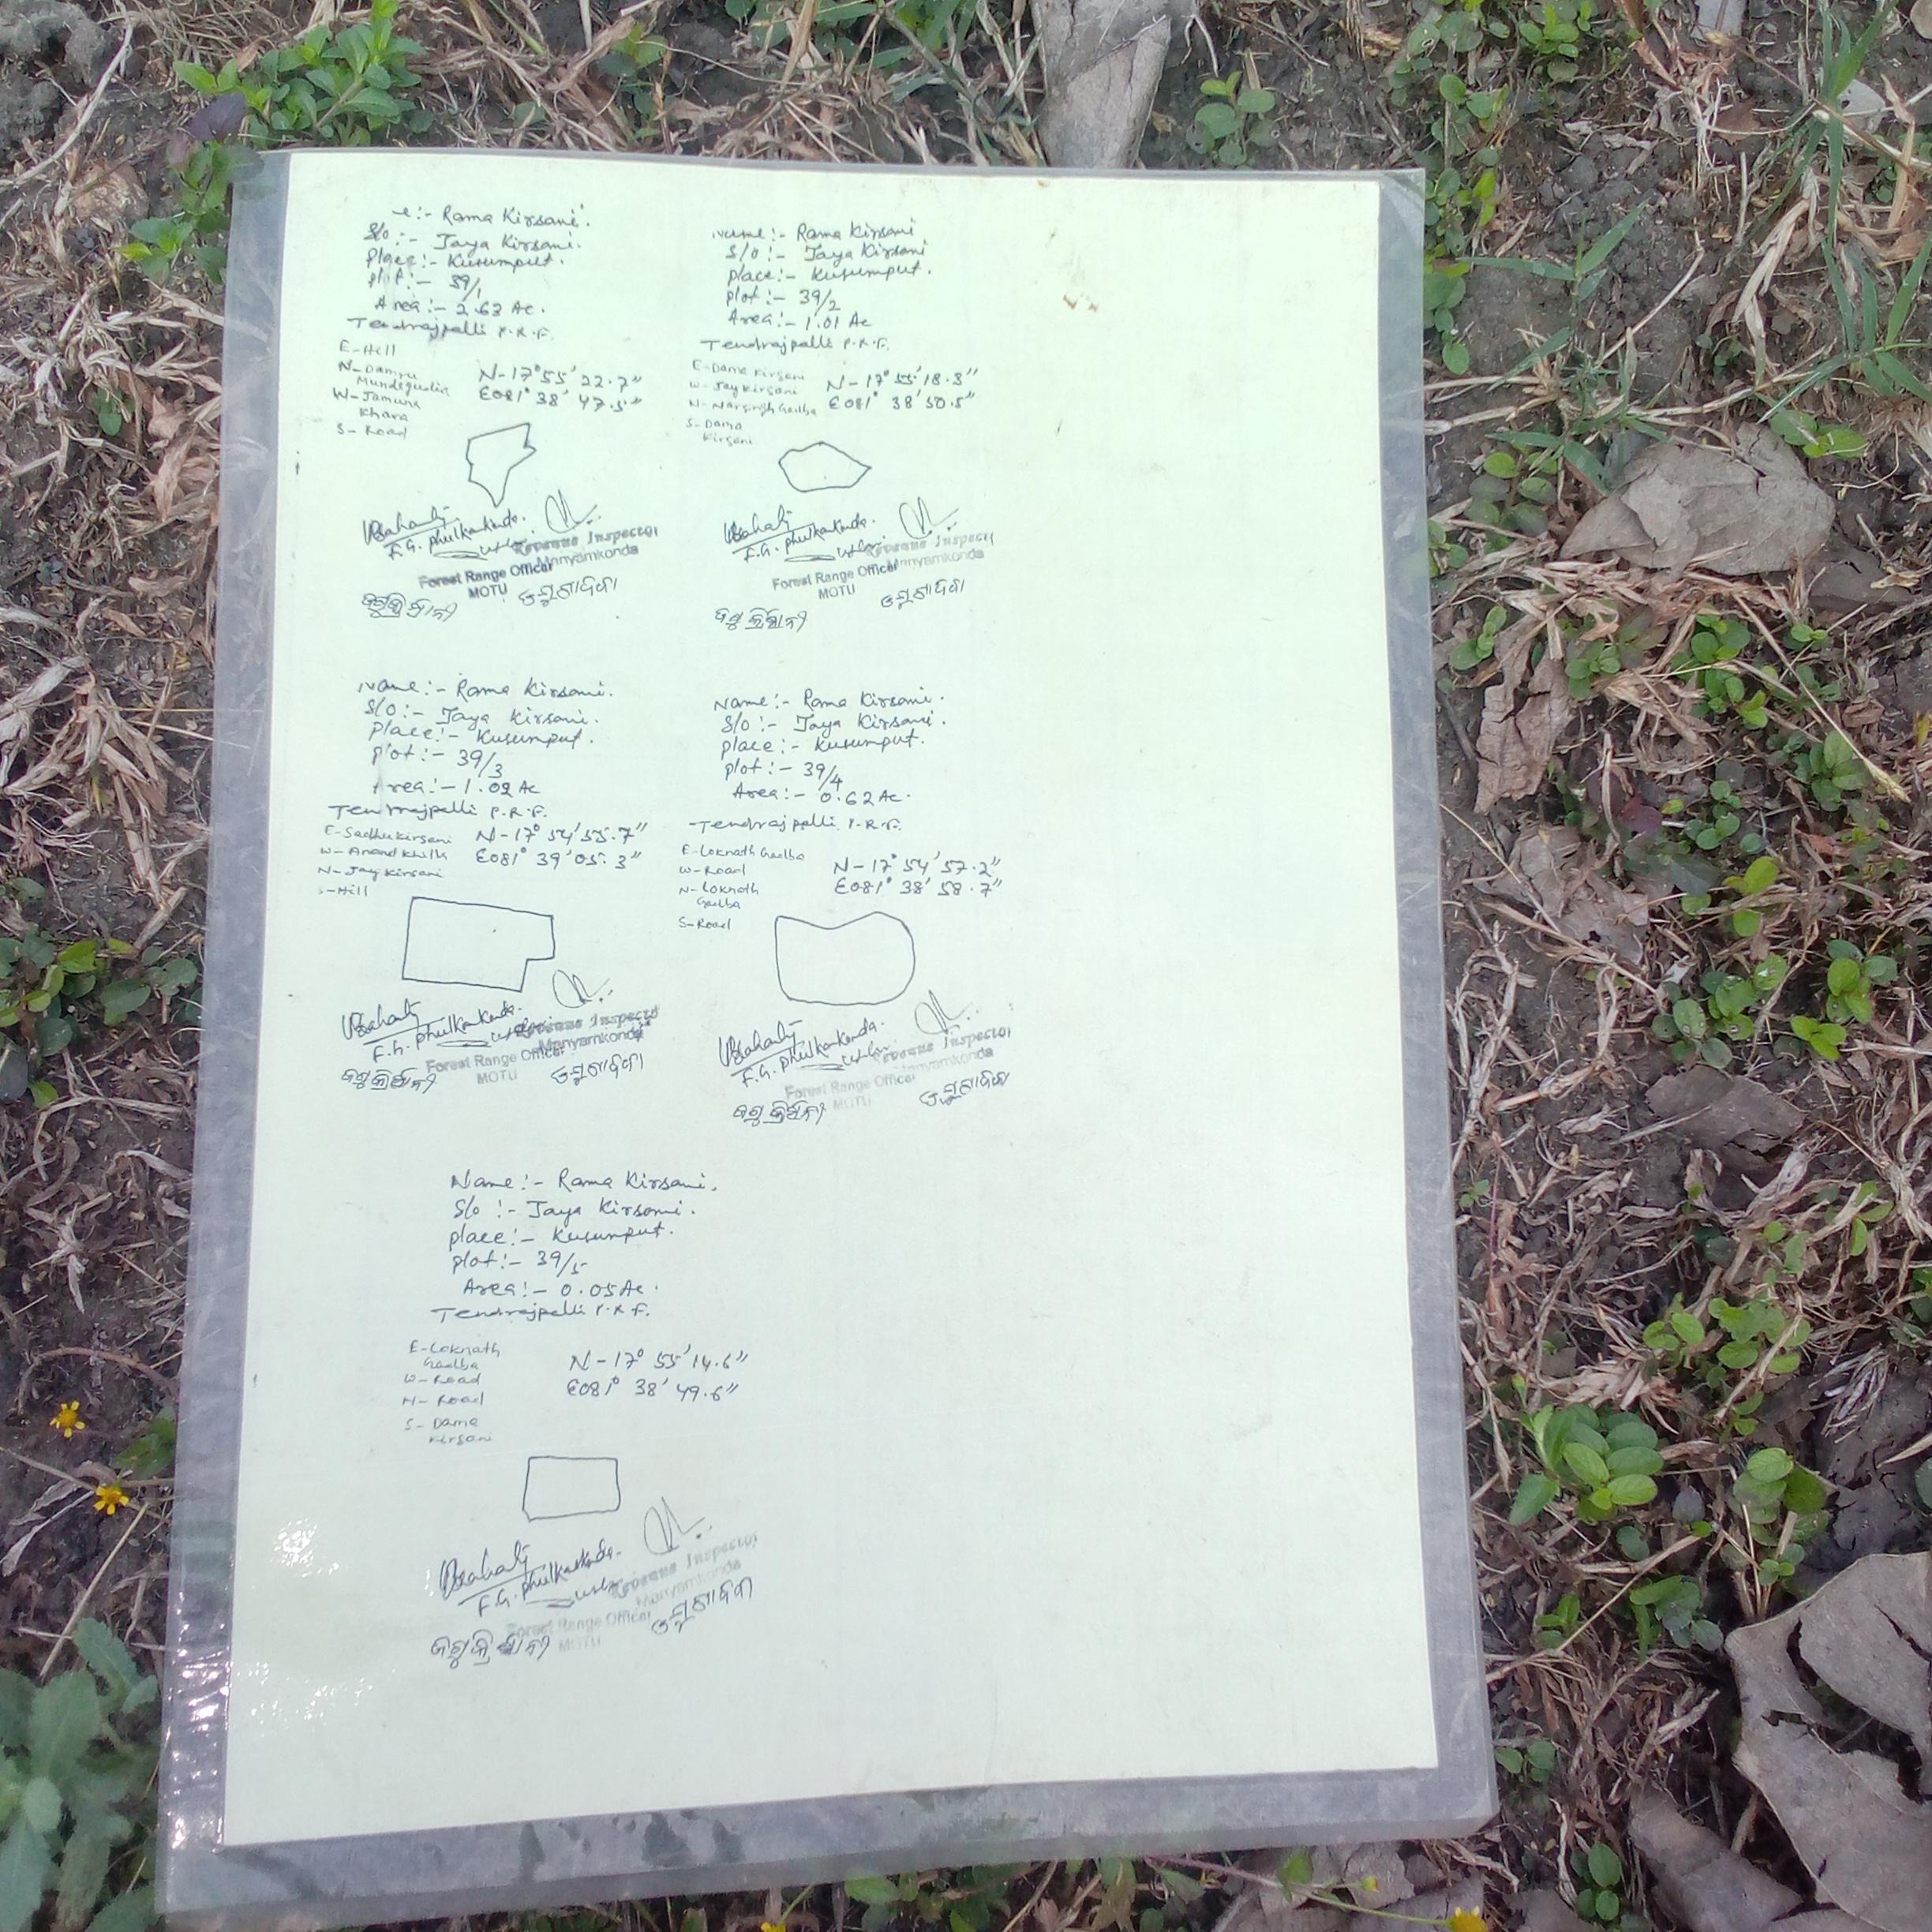 e:- Rama Kirsani.
S/o:- Jaya Kirsani.
Place:- Kusumput.
plot:- 39/1
Area:- 2.63 Ac.
Tendrajpalli P.R.F.
E-Hill
N-Damru Mundagudia
W-Jamuna Khara
S-Road
N-17°55'22.7"
E081° 38' 47.5"
F.G. Phulkankonda.
Revenue Inspector
Manyamkonda
Forest Range Officer
MOTU
Name:- Rama Kirsani
S/o:- Jaya Kirsani
place:- Kusumput.
plot:- 39/2
Area:- 1.01 Ac
Tendrajpalli P.R.F.
E-Dama Kirsani
W-Jay Kirsani
N-Narsingh Gadba
S-Dama Kirsani
N-17°55'18.3"
E081° 38'50.5"
F.G. Phulkankonda.
Revenue Inspector
Manyamkonda
Forest Range Officer
MOTU
Name:- Rama Kirsani.
S/o:- Jaya Kirsani.
Place:- Kusumput.
plot:- 39/3
Area:- 1.02 Ac
Tendrajpalli P.R.F.
E-Sadhu Kirsani
W-Anand Khilla
N-Jay Kirsani
S-Hill
N-17° 54' 55.7"
E081° 39' 05.3"
F.G. Phulkankonda.
Revenue Inspector
Manyamkonda
Forest Range Officer
MOTU
Name:- Rama Kirsani.
S/o:- Jaya Kirsani.
place:- Kusumput.
plot:- 39/4
Area:- 0.62 Ac.
Tendrajpalli P.R.F.
E-Loknath Gadba
W-Road
N-Loknath Gadba
S-Road
N-17° 54' 57.2"
E081° 38' 58.7"
F.G. Phulkankonda.
Revenue Inspector
Manyamkonda
Forest Range Officer
MOTU
Name:- Rama Kirsani.
S/o:- Jaya Kirsani.
place:- Kusumput.
plot:- 39/5
Area:- 0.05 Ac.
Tendrajpalli P.R.F.
E-Loknath Gadba
W-Road
N-Road
S-Dama Kirsani
N-17° 55' 14.6"
E081° 38' 49.6"
F.G. Phulkankonda.
Revenue Inspector
Manyamkonda
Forest Range Officer
MOTU